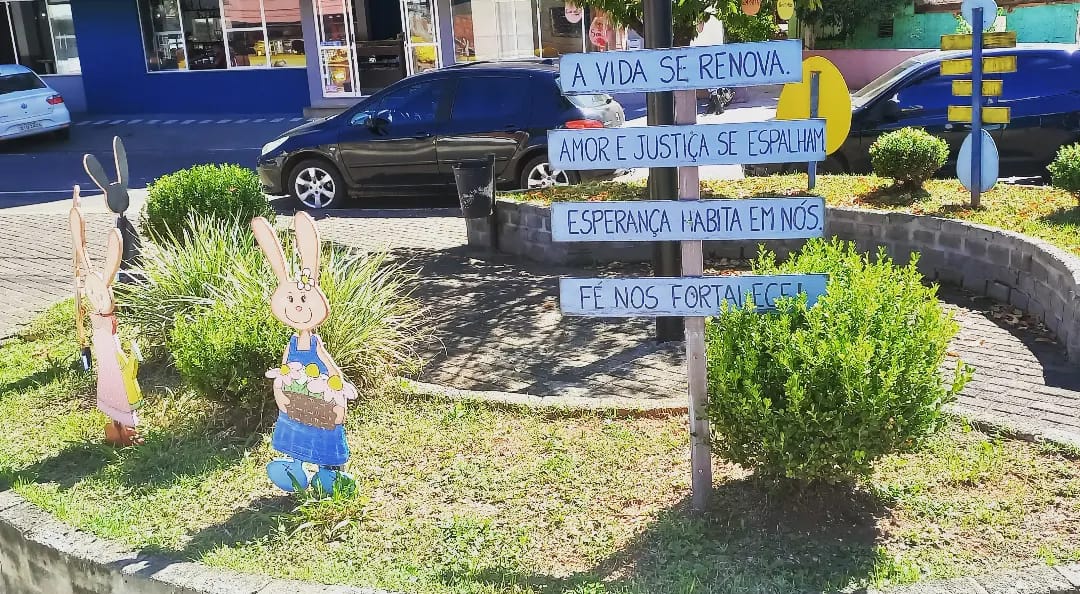 A VIDA SE RENOVA.
AMOR E JUSTIÇA SE ESPALHAM,
ESPERANÇA HABITA EM NÓS,
FÉ NOS FORTALECE!